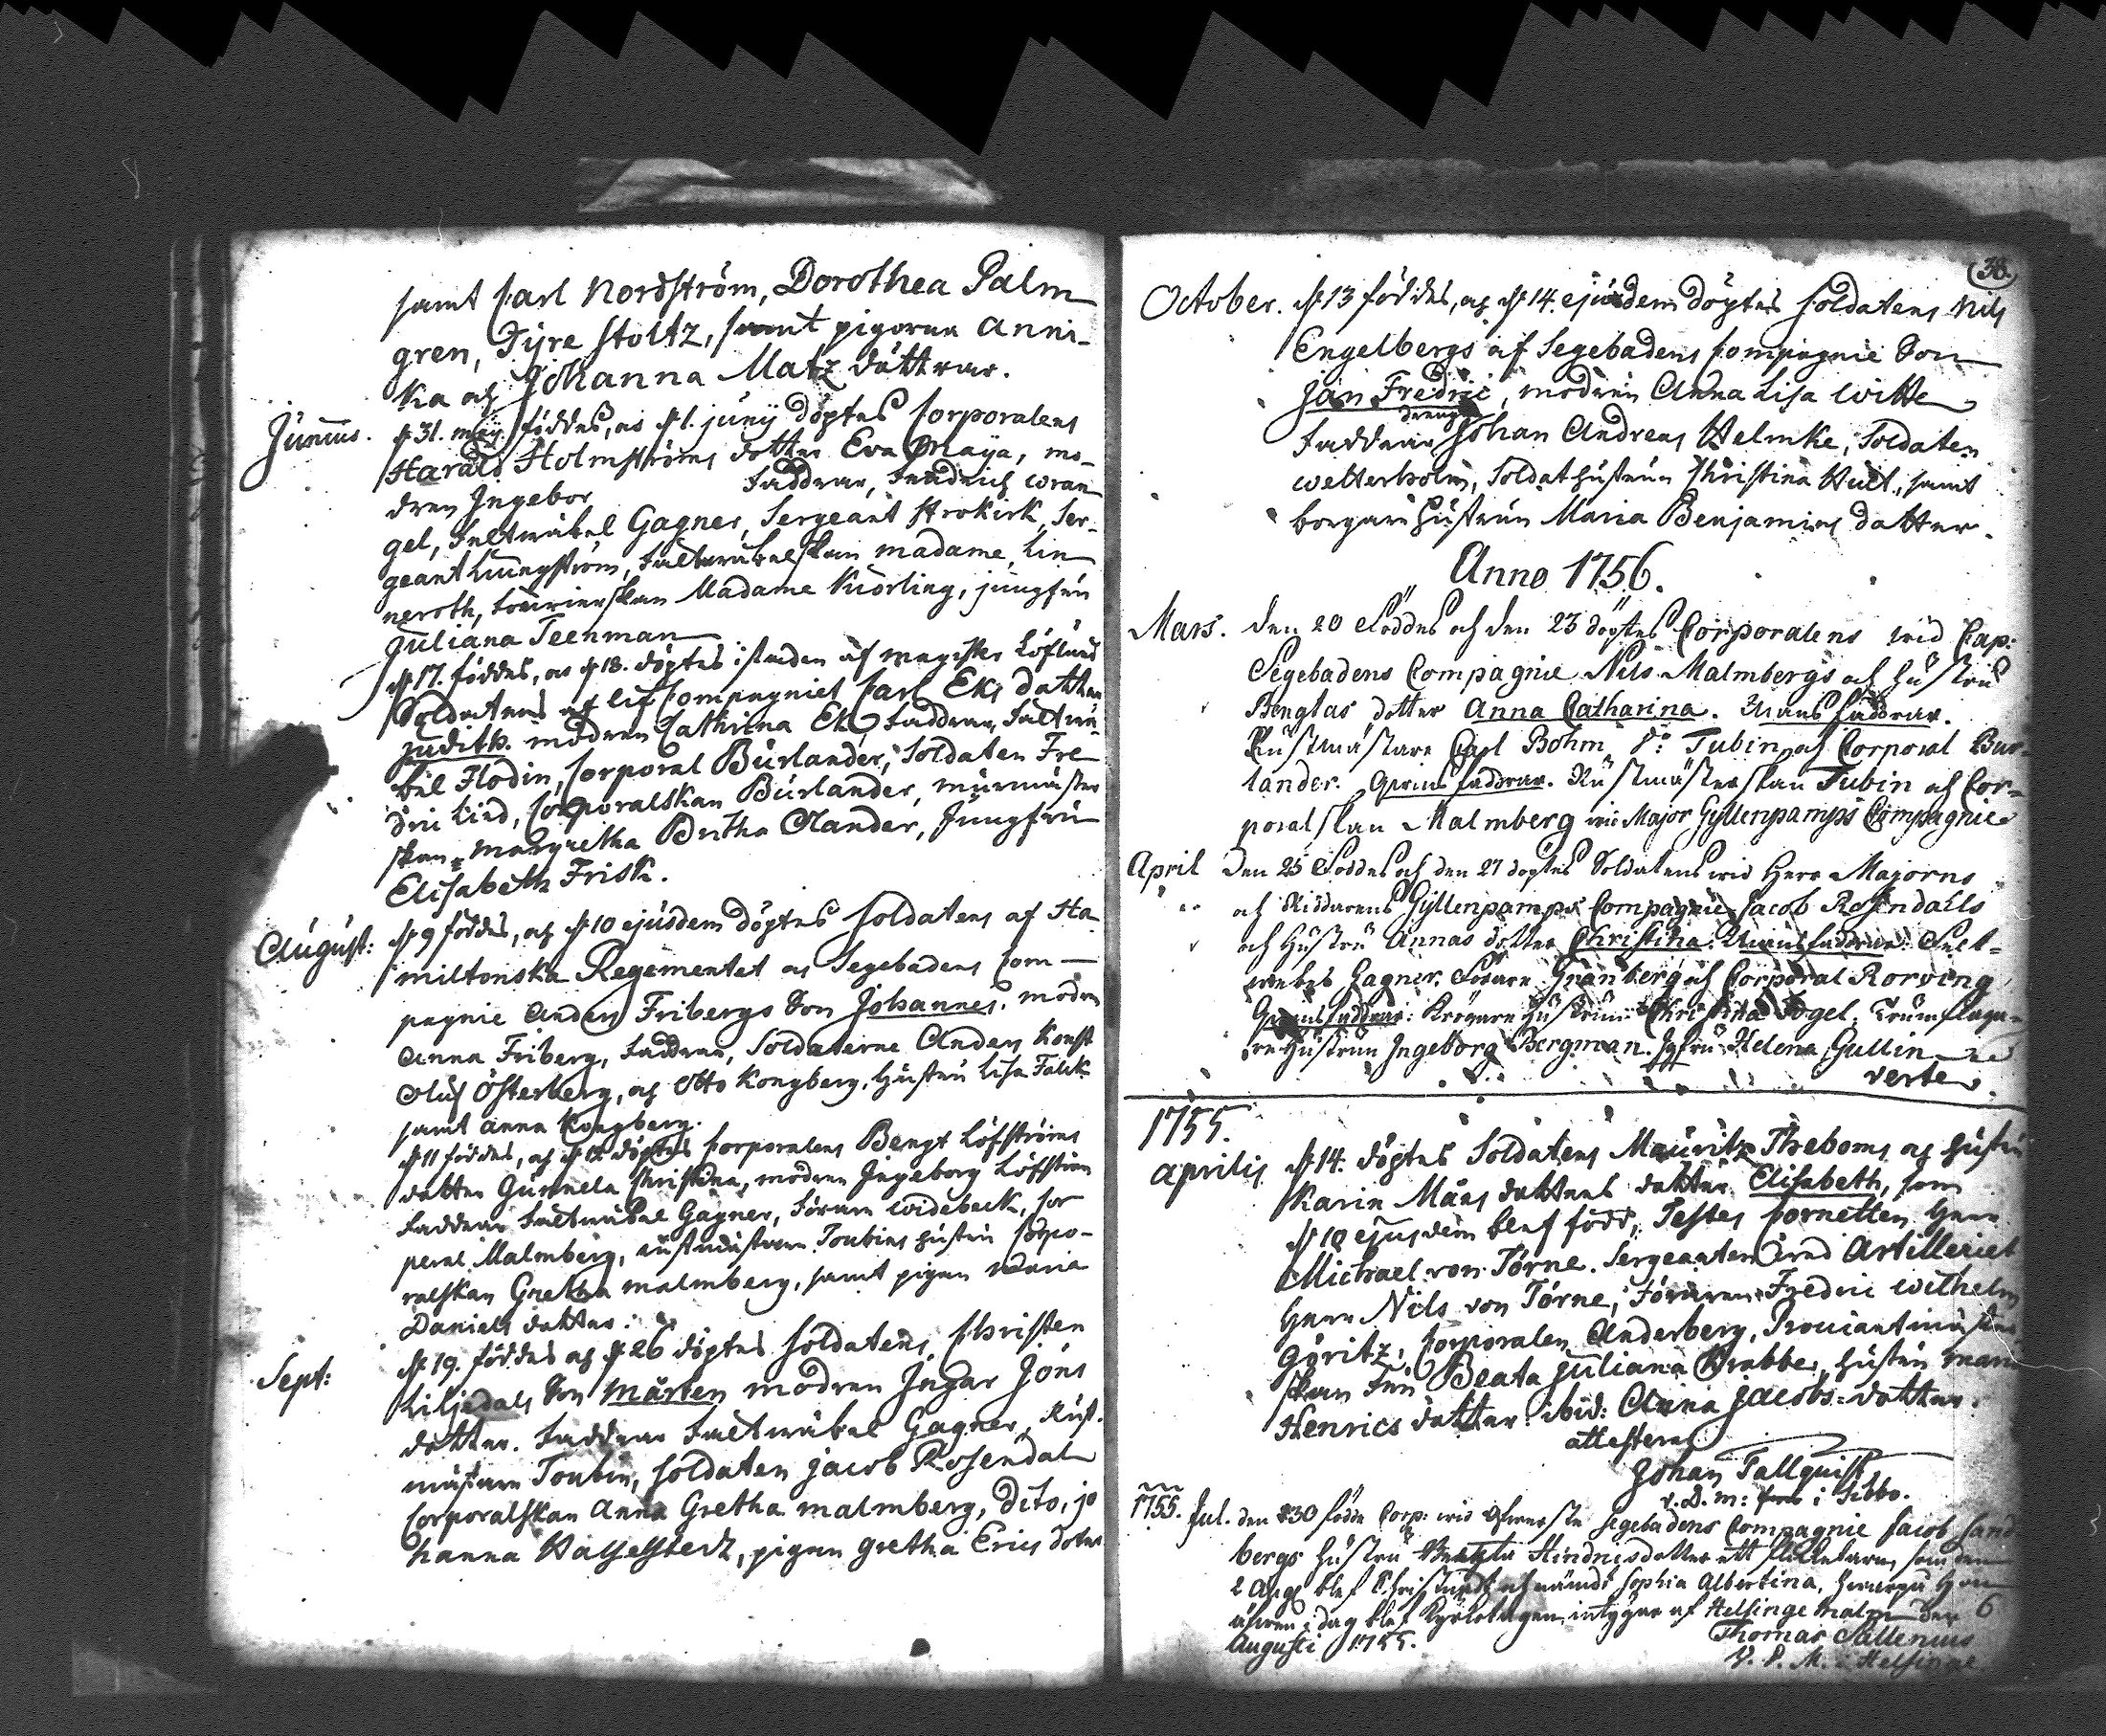 samt Carl Nordström, Dorothea Palm
gren, Fijre Stoltz, samt pigorna Anni-
ka och Johanna Matz döttrar.
Junius. d 31. maij föddes, och d 1. junij döptes Corporalens
Harald Holmströms dotter Eva Maija, mo-
dren Ingebor Faddrar, Fradrich Wran
gel, Faltwäbel Gagner, Sergeant Strokirk, Ser-
geant Liungström, Faltwäbelskan madame Lin
neroth, fourierskan Madame Kiörling, jungfru
Juliana Teenman
d 17. föddes, och d 18. döptes i staden af magister Löflund
Soldatens af lif Compagniet Carl Eks dotter
Judith. modren Cathrina Ek, Faddrar, Faltwä-
bel Flodin, Corporal Burlander, Soldaten Fre
dric Lind, Corporalskan Burlander, murmäster
skan Margretha Bertha Olander, Jungfru
Elisabeth Frisk.
August: d 9 föddes, och d 10 ejusdem döptes soldatens af Ha
miltonska Regementet och Segebadens Com-
pagnie Anders Fribergs Son Johannes, modren
Anna Friberg, Faddrar, Soldaterne Anders Konst
Oluf Österberg, och Otto Kongberg, hustru Lisa Falck
samt Anna Kongberg.
d 11 föddes, och d 12 döptes Corporalens Bengt Löfströms
dotter Gunnela Christina, modren Ingeborg Löfström
Faddrar Faltwäbel Gagner, Förare Widebeck, Cor
poral Malmberg, rustmästare Toubins hustru Corpo-
ralskan Gretha Malmberg, samt pigan Maria
Daniels dotter.
Sept: d 19. föddes och d 26 döptes soldatens Christen
Liljedals Son Mårten modren Ingar Jöns
dotter. Faddrar Faltwäbel Gagner, Rust-
mästare Toubin, soldaten Jacob Rosendal
Corporalskan Anna Gretha Malmberg, dito, jo
hanna Hasselstedt, pigan Gretha Erics dotter
38.
October. d 13 föddes, och d 14. ejusdem döptes soldatens Nils
Engelbergs af Segebadens Compagnie Son
Jan Fredric, modren Anna Lisa Witte
dreng
Faddrar Johan Andreas Helmke, Soldaten
Wetterholm, Soldat hustrun Christina Hult, samt
borgare hustrun Maria Benjamins dotter.
Anno 1756.
Mars. den 20 föddes och den 23 döptes Corporalens wid Cap:
Segebadens Compagnie Nils Malmbergs och hustru
Bengtas dotter Anna Catharina. Mans faddrar.
Rustmästare Carl Bohm, d:o Tubin och Corporal Bur-
lander. Qwins faddrar. Rustmästerskan Tubin och Cor-
poralskan Malmberg wid Major Gyllenspamps Compagnie
April den 25 föddes och den 27 döptes Soldatens wid Herr Majorns
och Riddarens Gyllenpamps Compagnie Jacob Rosendahls
och hustru Annas dotter Christina. Mans faddrar. Felt-
webel Gagner. Förare Granberg och Corporal Rorving
Qwins faddrar: Krögare hustrun Christina Fogel. Trumslaga-
re hustrun Ingeborg Bergman. Jgfru Helena Gullin
verte.
1755.
Aprilis d 14. döptes Soldatens Mauritz Theboms och hustru
Karin Måns dotters dotter Elisabeth, som
d 10 ejusdem blef född, Testes Cornetten Herr
Michael von Törne. Sergeanten wid Artilleriet
Herr Nils von Törne, Föraren Fredric Wilhelm
Göritz, Corporalen Anderberg, Proviantmästar
skan fru Beata Juliana Krabbe, hustru Mari
Henrics dotter: ibid: Anna Jacobs-dotter.
attesterar
Johan Tallquist
v. D. m: i Sibbo.
1755. Jul. den 30 födde Corp: wid Öfwerste Segebadens Compagnie Jacob Sand
bergs hustru Hindricsdotter ett flickebarn, som den
2 Aug blef Christnadt och nämdt Sophia Albertina, hwarpå hon
äfwen i dag blef Kyrkotagen, intygar af Helsinge Malm den 6
Augusti 1755.
Thomas Sallenius
V. D. M. i Helsinge